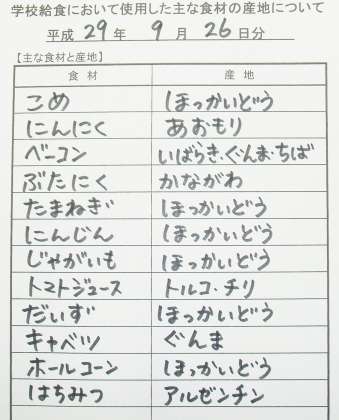 学校給食において使用した主な食材の産地について
平成 29 年 9 月 26 日分
【主な食材と産地】
食材 産地
こめ ほっかいどう
にんにく あおもり
ベーコン いばらき・ぐんま・ちば
ぶたにく かながわ
たまねぎ ほっかいどう
にんじん ほっかいどう
じゃがいも ほっかいどう
トマトジュース トルコ・チリ
だいず ほっかいどう
キャベツ ぐんま
ホールコーン ほっかいどう
はちみつ アルゼンチン